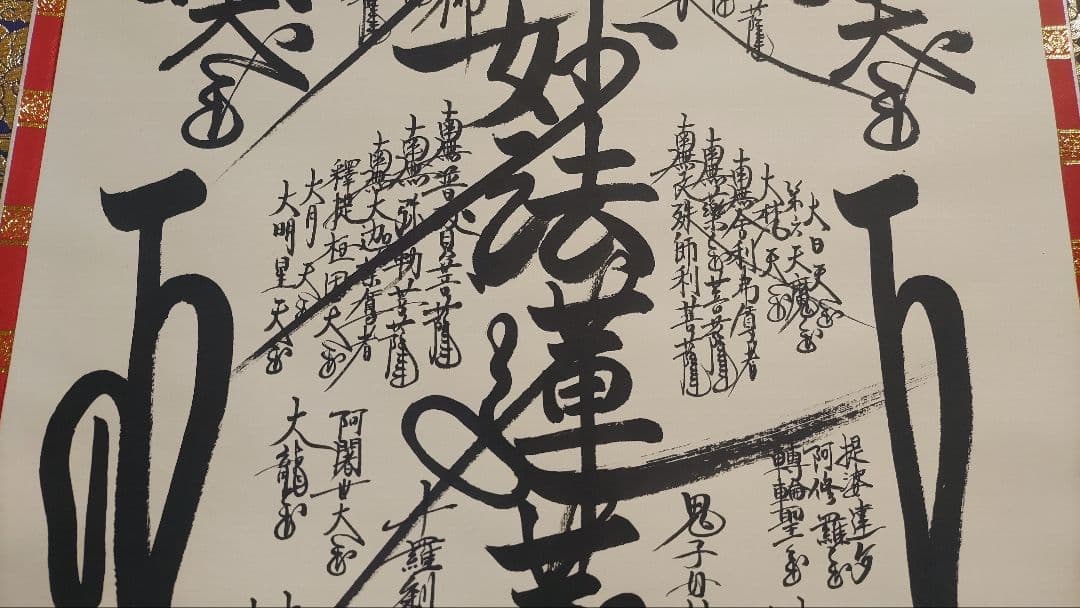 妙法蓮華
大日天王
第六天魔王
大梵天王
南無舎利弗尊者
南無薬王菩薩
南無文殊師利菩薩
南無普賢菩薩
南無弥勒菩薩
南無大迦葉尊者
釋提桓因大王
大月天王
大明星天王
提婆達多
阿修羅王
轉輪聖王
鬼子母
十羅刹
阿闍世大王
大龍王